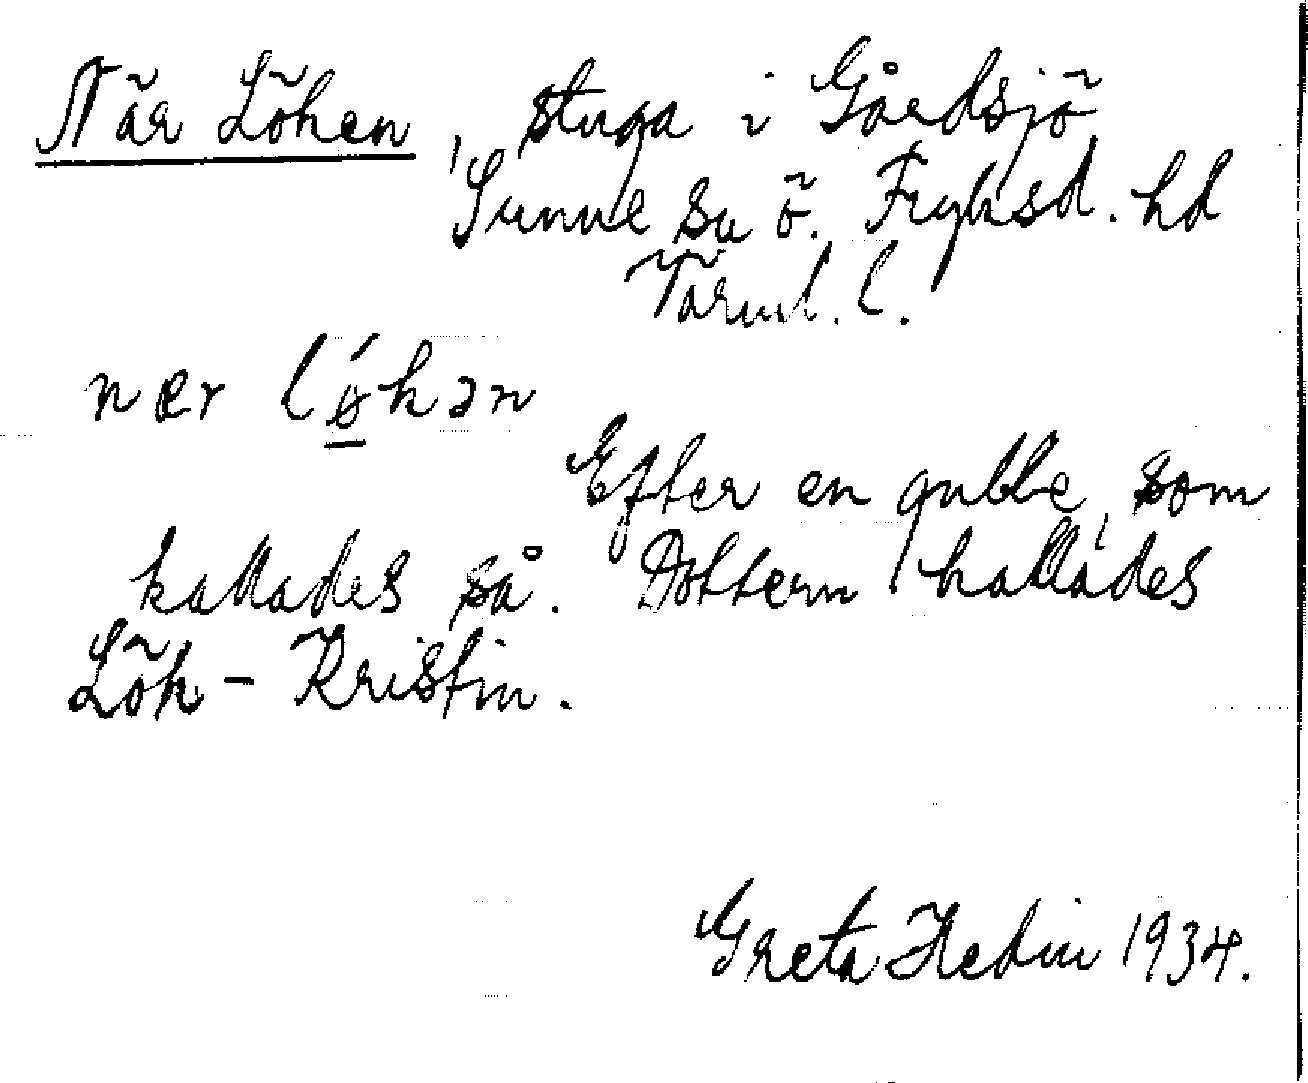 När Löken, stuga i Gårdsjö
Sunne sn Ö. Fryksd. hd
Värml. l.
nær lǿ̱kən
Efter en gubbe, som
kallades så. Dottern kallades
Lök-Kristin.
Greta Hedin 1934.